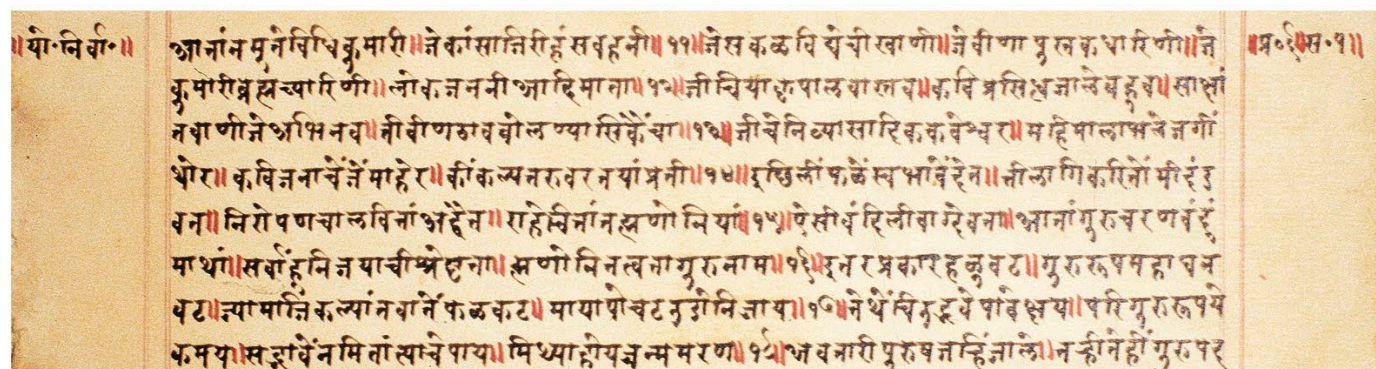 ॥यो॰निर्वा॰॥ आतां नमूं ते विधिकुमारी॥ जे कां सा जिरी हंसवहनी॥११॥ जे सकळ विद्येची खाणी॥ जे वीणा पुस्तकधारिणी॥ जे ॥प्र॰१॥स॰१॥
कुमारी ब्रह्मच्यारिणी॥ लोकजननी आदिमाता॥१२॥ जीचिया कृपालवास्तव॥ कवि प्रसिध्द जाले बहुव॥ साक्षां
त वाणी जे अभिनव॥ ती वीण ठाव बोलण्यासि कैंचा॥१३॥ जीचेनि व्यासादिक कवेश्वर॥ महिमा लाभले जगीं
थोर॥ कविजनाचें जें माहेर॥ कीं कल्पतरुवर नयां प्रती॥१४॥ इछिलीं फळें स्वभावें देत॥ तीलागि करितों मी दंड
वत॥ निरोपण चालवितां अद्वैत॥ राहे चित्तांत म्हणोनियां॥१५॥ ऐसी वंदिली वाग्देवता॥ आतां गुरुचरण वंदूं
माथां॥ सर्वांहुनि जयाची श्रेष्ठता॥ म्हणोनि तत्वता गुरु नाम॥१६॥ इतर प्रकार हळुवट॥ गुरुरूप महा घन
वट॥ ज्यामाजि कल्पांतवातें फळकट॥ माया पोचट उडोनि जाय॥१७॥ तेथें चिदुद्भवे पावे क्षय॥ परि गुरुरूप ये
कमय॥ सद्भावें नमितां त्याचे पाय॥ मिथ्या होय जन्ममरण॥१८॥ अवतारी पुरुष जर्‍हिं जाले॥ तर्‍ही तेहीं गुरुपद